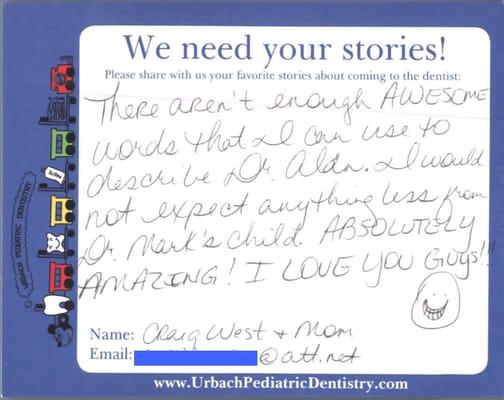 We need your stories!
Please share with us your favorite stories about coming to the dentist:
There aren't enough AWESOME
words that I can use to
describe Dr. Aldn. I would
not expect anything less from
Dr. Mark's child. ABSOLUTELY
AMAZING! I LOVE YOU GUYS!!!
Name: Craig West + Mom
Email: @att.net
www.UrbachPediatricDentistry.com
URBACH PEDIATRIC DENTISTRY